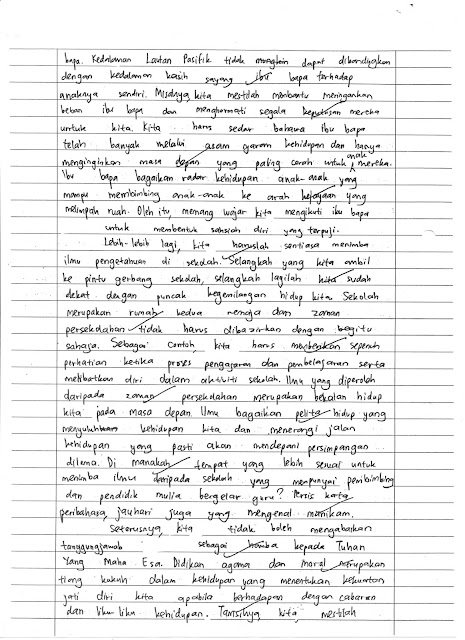 bapa. Kedalaman Lautan Pasifik tidak mungkin dapat dibandingkan
dengan kedalaman kasih sayang ibu bapa terhadap
anaknya sendiri. Misalnya, kita mestilah membantu meringankan
beban ibu bapa dan menghormati segala keputusan mereka
untuk kita. Kita harus sedar bahawa ibu bapa
telah banyak melalui asam garam kehidupan dan hanya
menginginkan masa depan yang paling cerah untuk anak mereka.
Ibu bapa bagaikan radar kehidupan anak-anak yang
mampu membimbing anak-anak ke arah kejayaan yang
melimpah ruah. Oleh itu, memang wajar kita mengikuti ibu bapa
untuk membentuk sahsiah diri yang terpuji.
Lebih-lebih lagi, kita haruslah sentiasa menimba
ilmu pengetahuan di sekolah. Selangkah yang kita ambil
ke pintu gerbang sekolah, selangkah lagilah kita sudah
dekat dengan puncak kegemilangan hidup kita. Sekolah
merupakan rumah kedua remaja dan zaman
persekolahan tidak harus dibazirkan dengan begitu
sahaja. Sebagai contoh, kita harus memberikan sepenuh
perhatian ketika proses pengajaran dan pembelajaran serta
melibatkan diri dalam aktiviti sekolah. Ilmu yang diperoleh
daripada zaman persekolahan merupakan bekalan hidup
kita pada masa depan. Ilmu bagaikan pelita hidup yang
menyuluh kehidupan kita dan menerangi jalan
kehidupan yang pasti akan mendepani persimpangan
dilema. Di manakah tempat yang lebih sesuai untuk
menimba ilmu daripada sekolah yang mempunyai pembimbing
dan pendidik mulia bergelar guru? Persis kata
peribahasa, jauhari juga yang mengenal manikam.
Seterusnya, kita tidak boleh mengabaikan
tanggungjawab sebagai hamba kepada Tuhan
Yang Maha Esa. Didikan agama dan moral merupakan
tiang kukuh dalam kehidupan yang menentukan kekuatan
jati diri kita apabila berhadapan dengan cabaran
dan liku-liku kehidupan. Tamsilnya kita mestilah